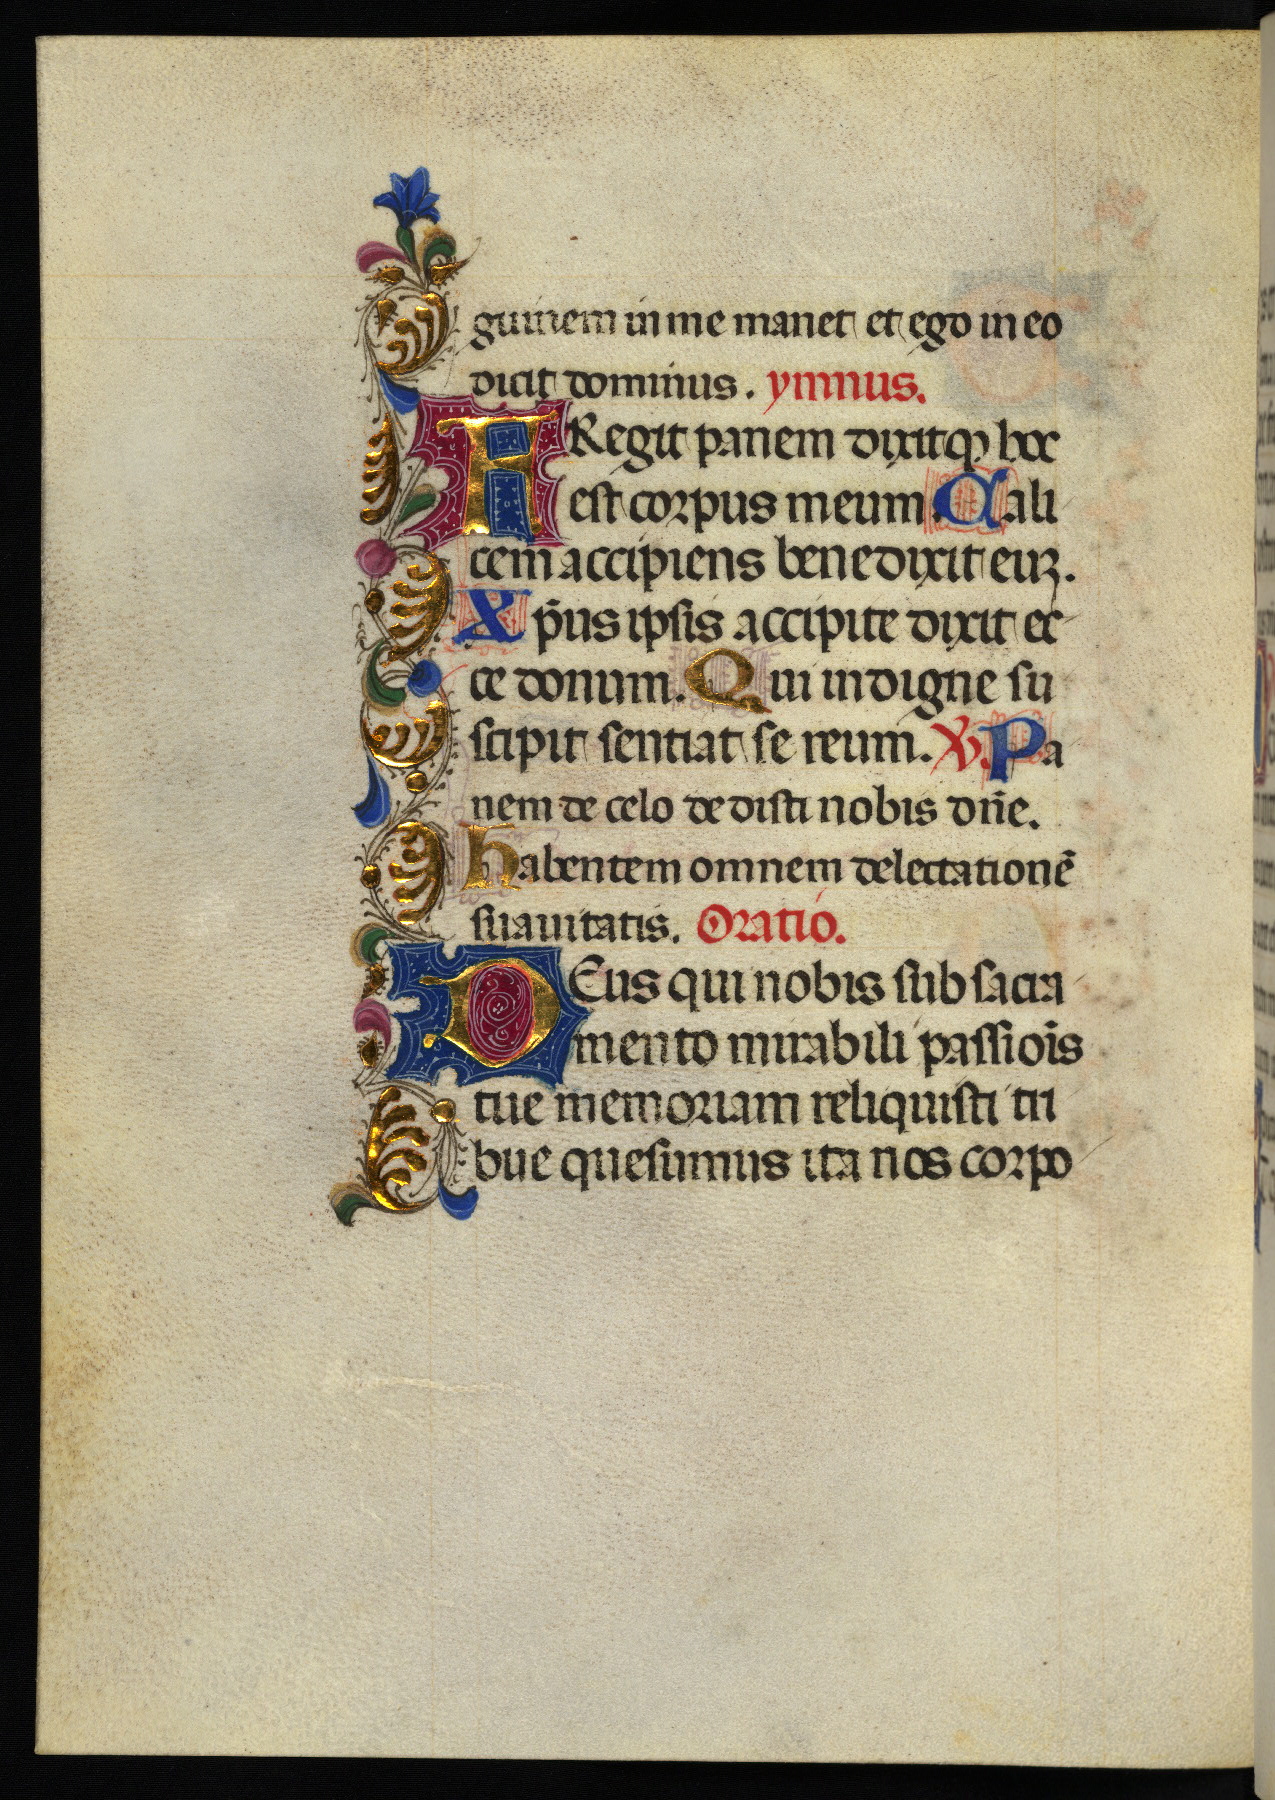 guinem in me manet et ego in eo
dicit dominus. ymnus.
FRegit panem dixitq̧ hoc
est corpus meum. Cali
cem accipiens benedixit euꝫ.
Xp̄us ipsis accipite dixit ec
ce donum. Qui indigne su
scipit sentiat se reum. ℣. Pa
nem de celo dedisti nobis dn̄e.
habentem omnem delectationē
suauitatis. Oratio.
DEus qui nobis sub sacra
mento mirabili passiōis
tue memoriam reliquisti tri
bue quesumus ita nos corpo